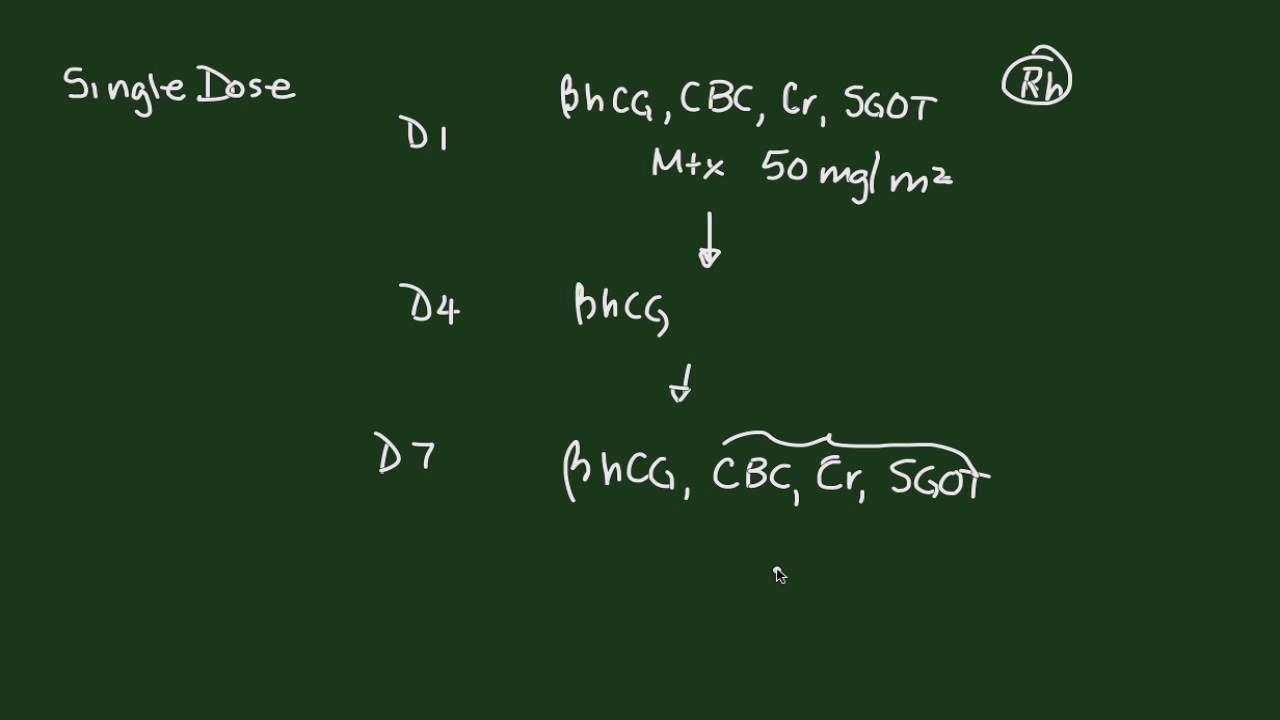 Single Dose
βhCG, CBC, Cr, SGOT
Rh
D1
Mtx 50 mg/m²
D4 βhCG
D7 βhCG, CBC, Cr, SGOT